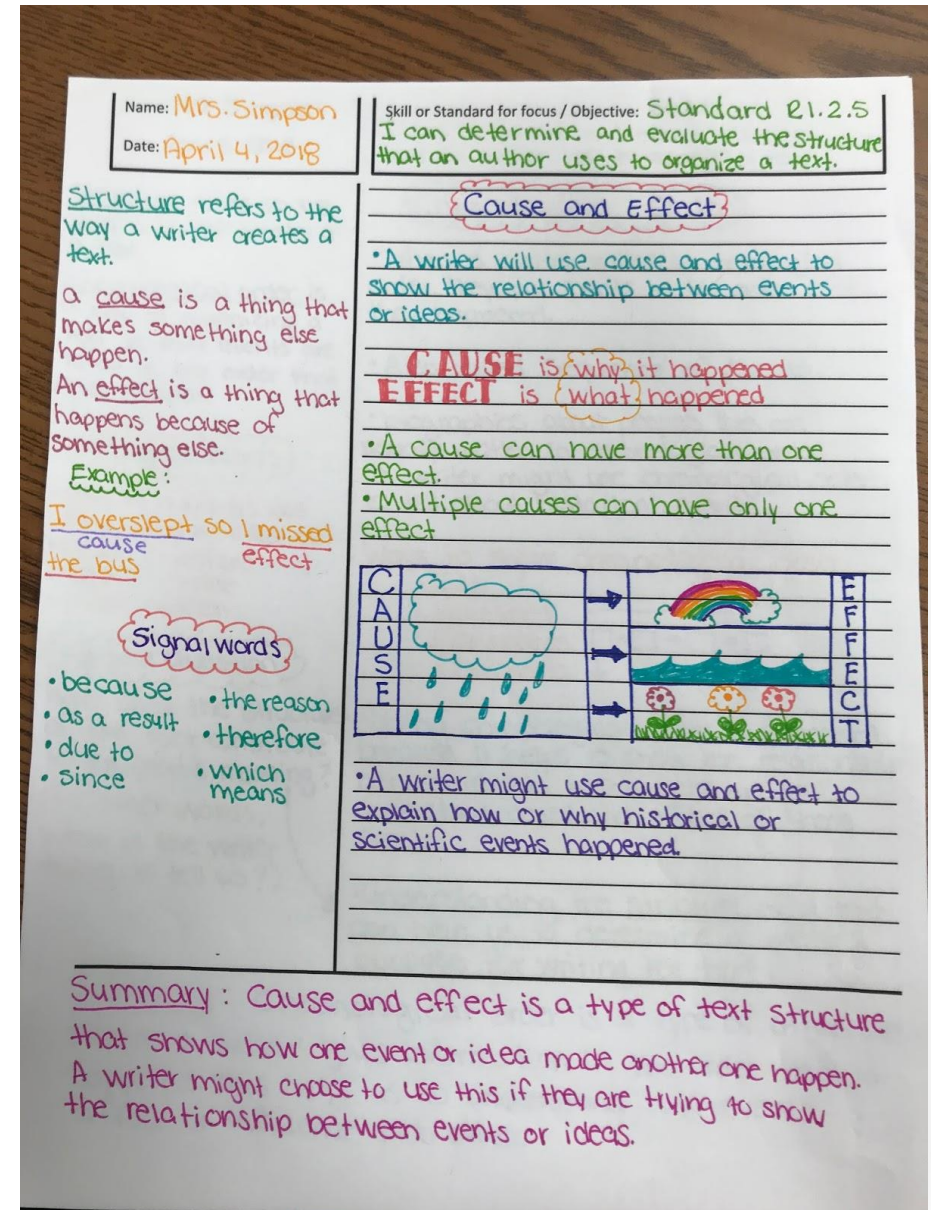 Name: Mrs. Simpson
Date: April 4, 2018
Skill or Standard for focus / Objective: Standard R1.2.5
I can determine and evaluate the structure
that an author uses to organize a text.
Structure refers to the
way a writer creates a
text.
a cause is a thing that
makes something else
happen.
An effect is a thing that
happens because of
something else.
Example:
I overslept so I missed
cause effect
the bus
Signal words
• because
• as a result
• due to
• since
• the reason
• therefore
• which
means
Cause and Effect
• A writer will use cause and effect to
show the relationship between events
or ideas.
CAUSE is why it happened
EFFECT is what happened
• A cause can have more than one
effect.
• Multiple causes can have only one
effect
CAUSE
EFFECT
• A writer might use cause and effect to
explain how or why historical or
scientific events happened.
Summary: Cause and effect is a type of text structure
that shows how one event or idea made another one happen.
A writer might choose to use this if they are trying to show
the relationship between events or ideas.